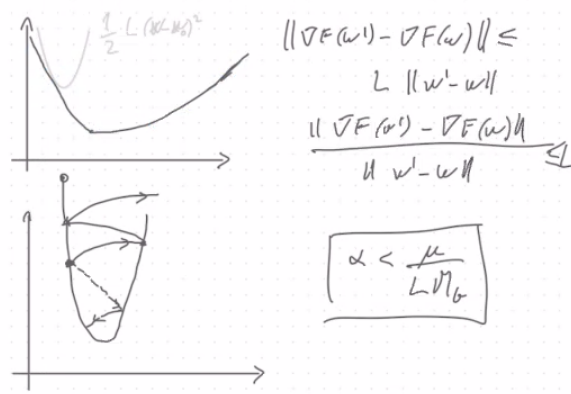 1/2 L (w-w₀)²
‖∇F(w') - ∇F(w)‖ ≤
L ‖w'-w‖
‖∇F(w') - ∇F(w)‖ / ‖w'-w‖ ≤L
α < μ / L M_G